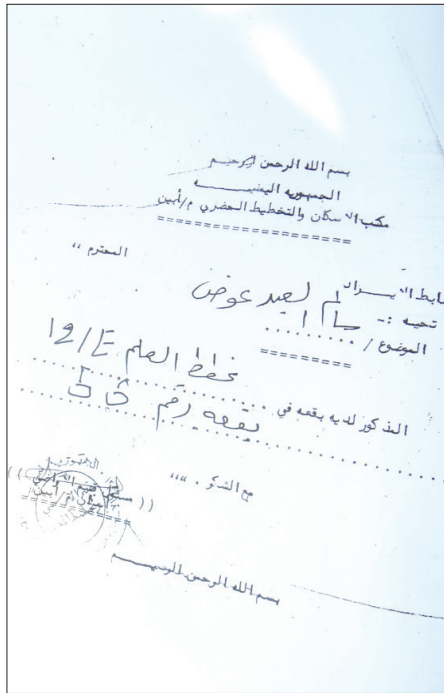 بسم الله الرحمن الرحيم
الجمهوريه اليمنيـــه
مكتب الاسكان والتخطيط الحضري م/أبين
====================
المحترم ،،
ضابط الايـــراد
تحيه :- سالم لعيد عوض
الموضوع / ........
==========
مخطط العلم E/19
المذكور لديه بقعه في ............
بقعه رقم
مع الشكر . ،،،،
بسم الله الرحمن الرحيـــم